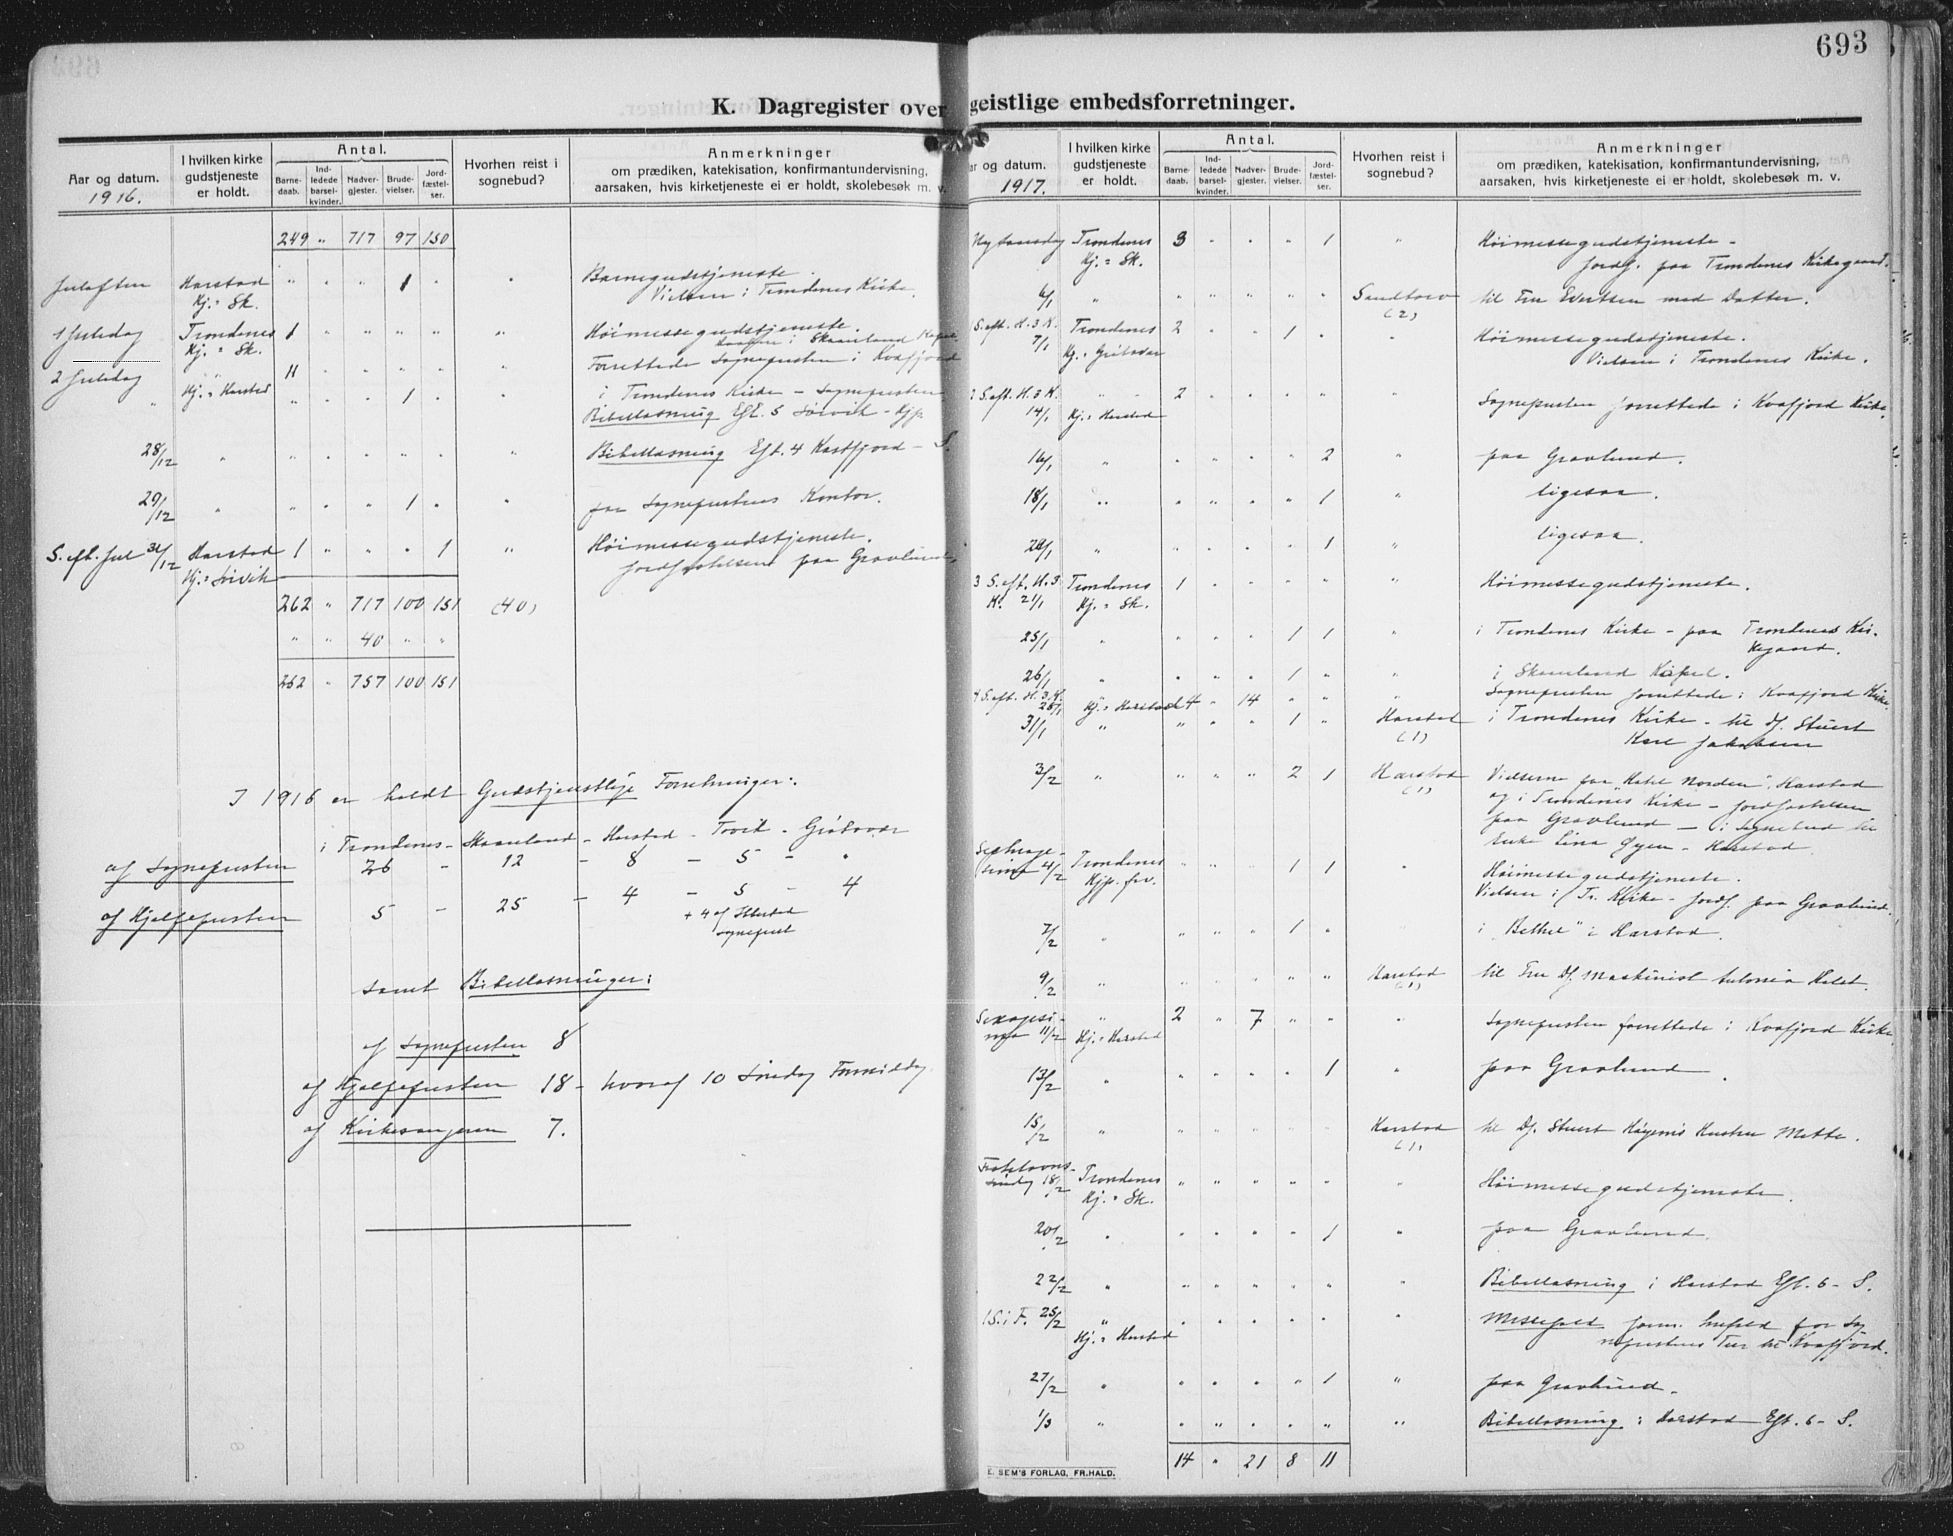 693
K. Dagregister over geistlige embedsforretninger.
Aar og datum.
1916.
I hvilken kirke gudstjeneste er holdt.
Antal.
Barne-daab.
Ind-ledede barsel-kvinder.
Nadver-gjester.
Brude-vielser.
Jord-fæstel-ser.
Hvorhen reist i sognebud?
Anmerkninger
om prædiken, katekisation, konfirmantundervisning,
aarsaken, hvis kirketjeneste ei er holdt, skolebesøk m. v.
249 " 717 97 150
Juleaften Harstad " " " 1 " " Barnegudstjeneste.
Hj. = Sk. Vielsen i Trondenes Kirke.
1 Juledag Trondenes 1 " " " " " Høimessegudstjeneste.
Hj. = Sk. i Skaanland Kapel
2 Juledag " 11 " " " " " Forrettede Sognepresten i Kvæfjord
" Hj. = Harstad " " " 1 " " i Trondenes Kirke - Sognepresten
Bibellæsning Eft. 5 Sørvik - Hjp.
28/12 " " " " " " " Bibellæsning Eft. 4 Kastfjord - S.
29/12 " " " " 1 " " paa Sogneprestens Kontor.
S. eft. Jul 31/12 Harstad 1 " " " 1 " Høimessegudstjeneste.
Hj. = Sørvik Jordfæstelsen paa Gravlund.
262 " 717 100 151 (40)
" " 40 " "
262 " 757 100 151
I 1916 er holdt Gudstjenstlige Forretninger:
i Trondenes - Skaanland - Harstad - Tovik - Grøtavær
af Sognepresten 26 - 12 - 8 - 5 - "
af Hjelpepresten 5 - 25 - 4 - 5 - 4
+ 4 af Ibbestad
Sogneprest
samt Bibellæsninger:
af Sognepresten 8
af Hjelpepresten 18 - hvoraf 10 Søndag Formiddag
af Kirkesangeren 7.
Aar og datum.
1917.
I hvilken kirke gudstjeneste er holdt.
Antal.
Barne-daab.
Ind-ledede barsel-kvinder.
Nadver-gjester.
Brude-vielser.
Jord-fæstel-ser.
Hvorhen reist i sognebud?
Anmerkninger
om prædiken, katekisation, konfirmantundervisning,
aarsaken, hvis kirketjeneste ei er holdt, skolebesøk m. v.
Nytaarsdag Trondenes 3 " " " 1 " Høimessegudstjeneste -
Hj. = Sk. Jordf. paa Trondenes Kirkegaard.
6/1 " " " " " " Sandtorv til Fru Evertsen med Datter.
(2)
S. eft. H. 3 K. Trondenes 2 " " 1 " " Høimessegudstjeneste.
7/1 Hj. = Grøtavær Vielsen i Trondenes Kirke.
2 S. eft. H. 3 K. " 2 " " " " " Sognepresten forrettede i Kvæfjord Kirke.
14/1 Hj. = Harstad
16/1 " " " " " 2 " paa Gravlund.
18/1 " " " " " 1 " ligesaa.
20/1 " " " " " 1 " ligesaa.
3 S. eft. H. 3 Trondenes 1 " " " " " Høimessegudstjeneste.
K. 21/1 Hj. = Sk.
25/1 " " " " 1 1 " i Trondenes Kirke - paa Trondenes Kir-
kegaard.
26/1 " " " " 1 " " i Skaanland Kapel.
4 S. eft. H. 3. K. 28/1 Hj. = Harstad 4 " 14 " " " Sognepresten forrettede i Kvæfjord Kirke.
31/1 " " " " 1 " Harstad i Trondenes Kirke - til Df. Stuert
(1) Karl Jakobsen
3/2 " " " " 2 1 Harstad Vielserne paa "Hotel Norden", Harstad
(1) og i Trondenes Kirke - Jordfæstelsen
paa Gravlund - i Sognebud til
Enke Lina Øyen - Harstad.
Septuage-
sima 4/2 Trondenes " " " 1 1 Høimessegudstjeneste.
Hjp. frv. Vielsen i Tr. Kirke - Jordf. paa Gravlund.
7/2 " " " " 1 " " i "Bethel" i Harstad.
9/2 " " " " " " Harstad til Fru Df. Maskinist Antonia Holst.
(1)
Sexagesi- " 2 " 7 " " " Sognepresten forrettede i Kvæfjord Kirke.
ma 11/2 Hj. = Harstad
13/2 " " " " " 1 " paa Gravlund.
15/2 " " " " " " Harstad til Df. Stuert Hustru Mette.
(1)
Fastelavns-
søndag 18/2 Trondenes " " " " " " Høimessegudstjeneste.
Hj. = Sk.
20/2 " " " " " 1 " paa Gravlund.
22/2 " " " " " " " Bibellæsning i Harstad Eft. 6 - S.
1 S. i F. 25/2 " " " " " " " Messefald
Hj. = Harstad til Kvæfjord.
27/2 " " " " " 1 " paa Gravlund.
1/3 " " " " " " " Bibellæsning i Harstad Eft. 6 - S.
14 " 21 8 11
E. SEM'S FORLAG, FR.HALD.